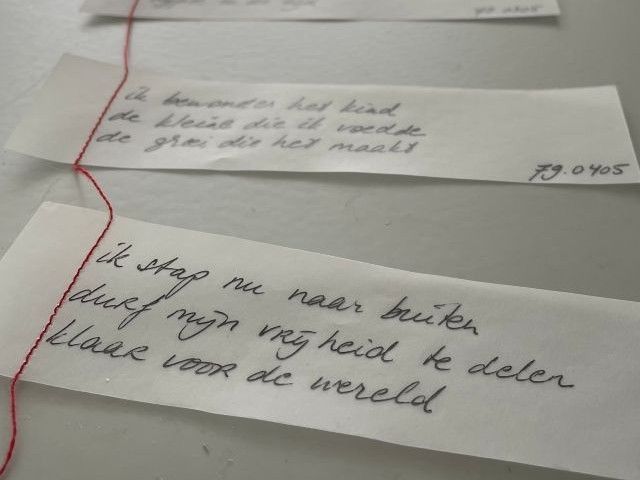 ik bewonder het kind
de kleine die ik voedde
de groei die het maakt
79.0405
ik stap nu naar buiten
durf mijn vrijheid te delen
klaar voor de wereld